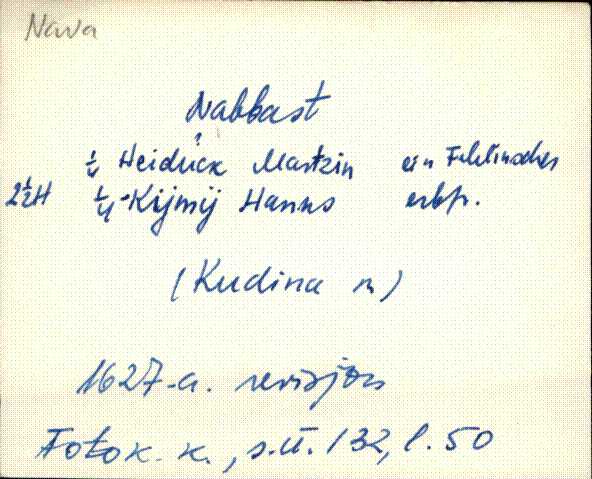 Nava
Nabbast
1/4 Heidück Martzin ein Fehlinscher
2 1/2 H 1/4 Kijmij Hanns erbp.
(Kudina m)
1627-a. revisjon
Fotok. k., s.ü. 132, l. 50